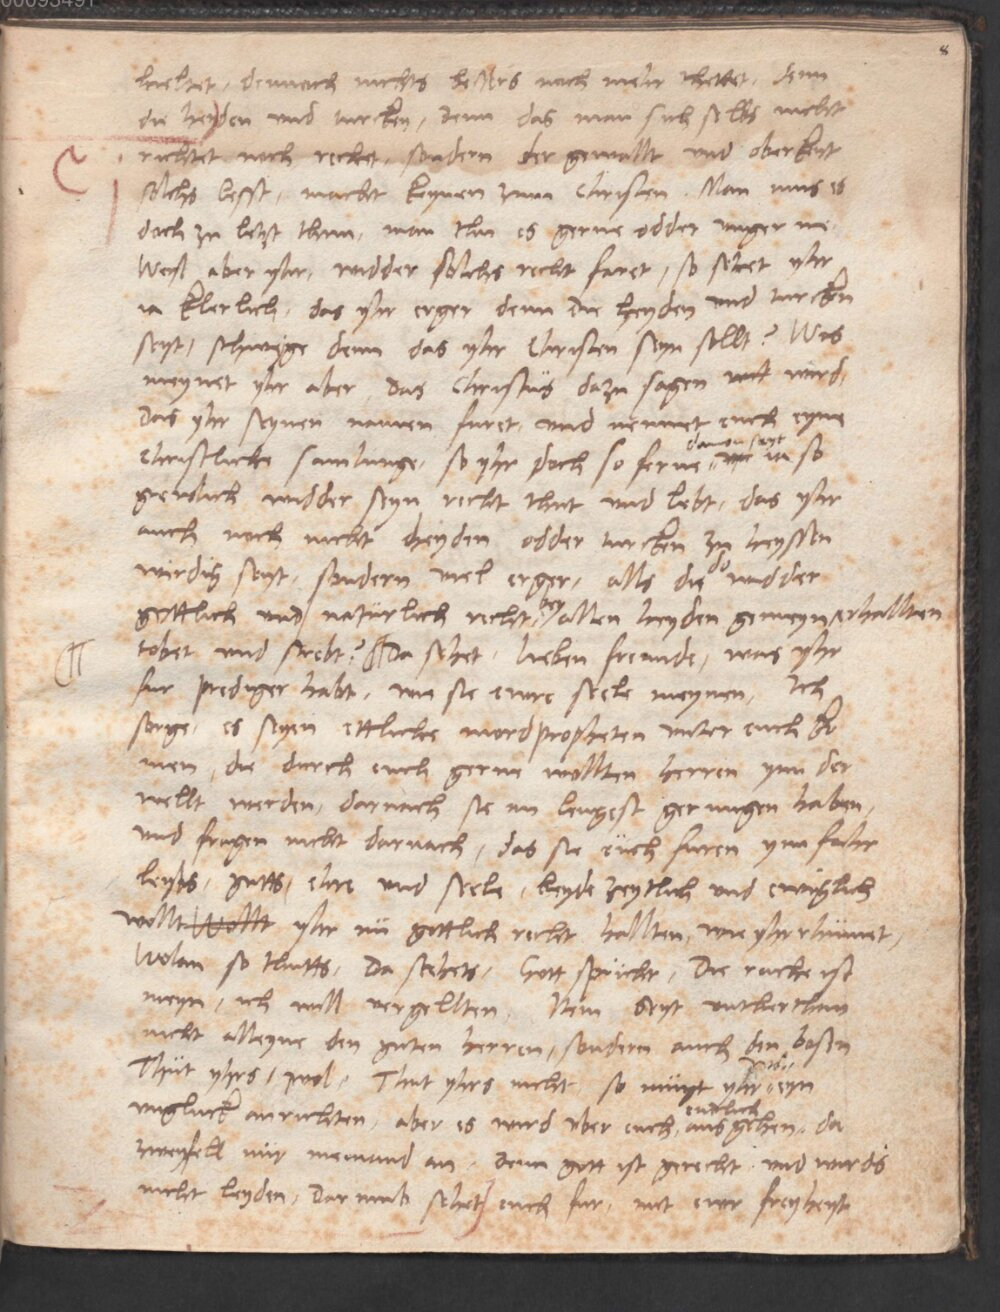 00093491
8
hieltet, dennoch nichts bessers noch mehr thettet, denn
die heyden und turcken, denn das man sich selbs nicht
richtet noch rechet, sondern der gewallt und oberkeyt
solchs lesst, machet keynen zum Christen. Man mus es
doch zu letzt thun, man thu es gerne odder ungerne.
Weyl aber yhr, widder solchs recht faret, so sehet yhr
ia klerlich, das yhr erger denn die heyden und turcken
seyt, schweyge denn das yhr Christen seyn sollt? Was
meynet yhr aber, das Christus dazu sagen wird,
das yhr seynen namen furet, und nennet euch eyne
davon seyt
Christliche samlunge, so yhr doch so ferne, ia so
grewlich widder seyn recht thut und lebt, das yhr
auch noch nicht heyden odder turcken zu heyssen
wirdig seyt, sondern viel erger, alls die do widder
gottlich und naturlich recht, bey allen heyden gemeyn erhallten
tobet und strebt? Da sehet, lieben freunde, was yhr
fur prediger habt, wie sie ewre seele meynen. Ich
sorge, es seyen ettliche mordpropheten unter euch ko
men, die durch euch gerne wollten herren ynn der
wellt werden, darnach sie nu lengest gerungen haben,
und fragen nicht darnach, das sie euch furen ynn fahr
leybs, gutts, ehre und seele, beyde zeytlich und ewiglich
wollt Wollt yhr nu gottlich recht hallten, wie yhr rhumet,
Wolan so thutts, Da stehets, Gott spricht, Die rache ist
meyn, ich will vergellten, Item Seyt unterthan
nicht alleyne den guten herren, sondern auch den bosen
Thut yhrs, wol, Thut yhrs nicht so muget yhr eyn
endlich
ungluck anrichten, aber es wird uber euch, ausgehen, da
zweyfell mir niemand an, denn gott ist gerecht und wirds
nicht leyden, Darumb sehet euch fur, mit ewr freyheyt